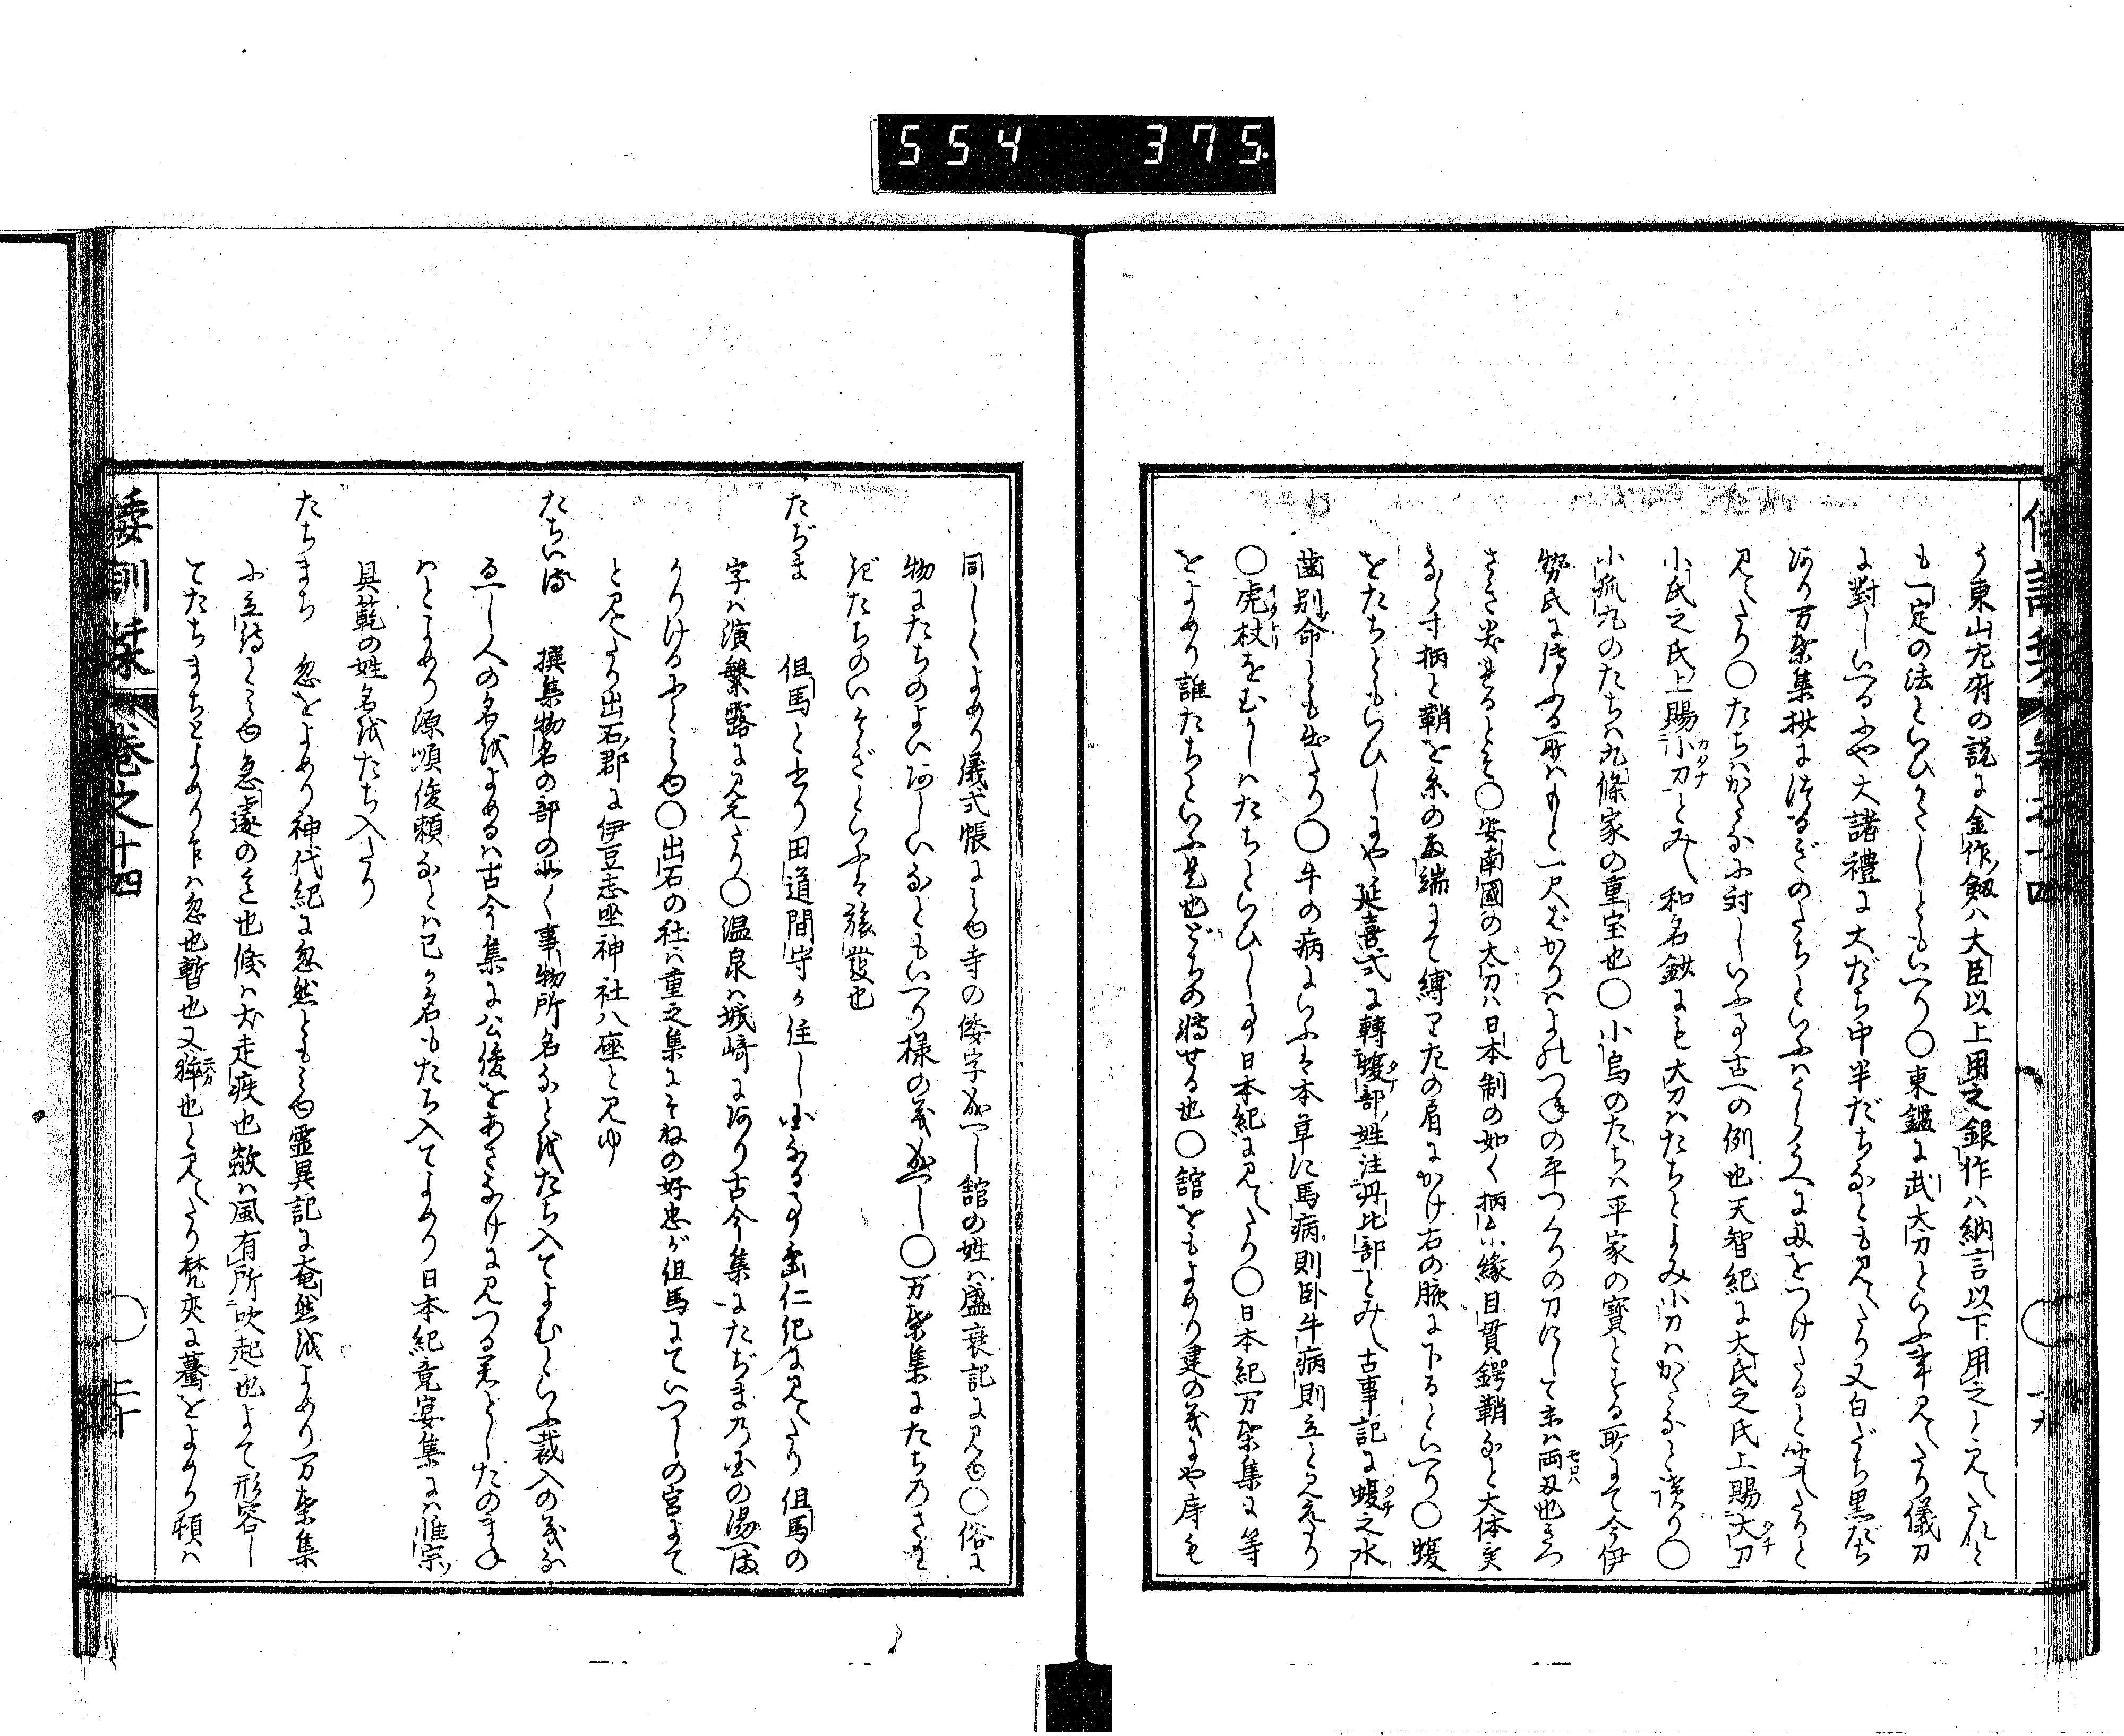 554 375.
う東山左府の説に金作ノ劔ハ大臣以上用之銀作ハ納言以下用之と見えたれと
も一定の法といひかたしともいへり〇東鑑に武太刀といふ事見えたり儀刀
に對しいへるにや大諸禮に大だち中半だちなとも見えたり又白だち黒だち
あり万葉集抄につるぎのたちといふハうらうへに刃をつけたると聞えたりと
見えたり〇たちハかたなに対しいふ事古への例也天智紀に大氏之氏上賜大刀
小氏之氏上賜小刀とみへ和名鈔にも大刀ハたちとよみ小刀ハかたなと讀り〇
小狐丸のたちハ九條家の重宝也〇小烏のたちハ平家の寳とする所にて今伊
勢氏に傳ふる所ハもと一尺ばかりハよのつねの平つくりの刀にして末ハ両刃也
〇安南國の太刀ハ日本制の如く柄ハ縁目貫鍔鞘なと大体
柄と鞘とを糸の両端にて縛りて左の肩にかけ右の腋に下るといへり〇蝮
をたちともいひしにや延喜式に轉蝮部ノ姓注丹比部とみへ古事記に蝮之水
歯別ノ命とも出たり〇牛の病にいふハ本草に馬病則卧牛病則立と見えたり
〇虎杖をむかしハたちといひし事日本紀に見えたり〇日本紀万葉集に等
をよめり誰たちといふ是也どちの轉せる也〇舘をもよめり建の義にや庤も
同しくよめり儀式帳にみゆ寺の倭字成へし舘の姓ハ盛衰記に見ゆ〇俗に
物にたちのよいあしいなともいへり様の義成へし〇万葉集にたちのさわ
ぎたちのいそぎといふハ發也
たぢま 但馬と書り田道間守か住し国なる事垂仁紀に見えたり但馬の
字ハ演繁露に見えたり〇温泉ハ城崎にあり古今集にたぢまの国の湯へま
かりけるにとみゆ〇出石の社ハ重之集にそねの好忠が但馬にていつしの宮にて
と見えたり出石ノ郡に伊豆志坐神社八座と見ゆ
たちいる 撰集物名の部の如く事物所名なとをたち入てよむといふ裁入の義な
るへし人の名をよめるハ古今集に公俊をあさなけに見つる君としたのまね
ハとよめり源順俊頼なとハ己か名もたち入てよめり日本紀竟宴集にハ惟宗ノ
具範の姓名をたち入たり
たちまち 忽をよめり神代紀に忽然ともみゆ霊異記に奄然をよめり万葉集
に立待とみゆ急遽の意也倐ハ犬走疾也歘ハ風有所吹起也よて形容し
てたちまちとよめり乍ハ忽也暫也又猝也と見えたり梵夾に驀をよめり頓ハ
倭訓栞 巻之十四 二十